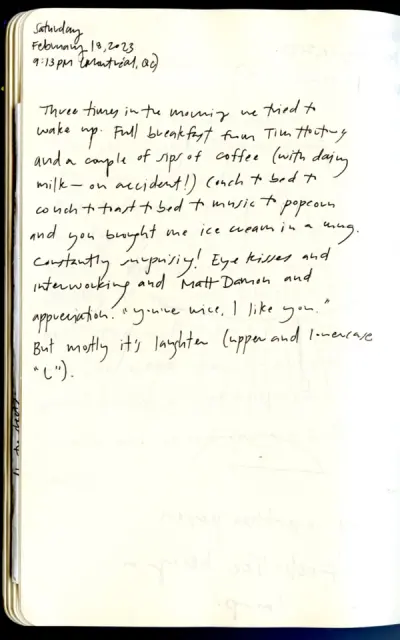 Saturday
February 18, 2023
9:13 PM (Montréal, QC)
Three times in the morning we tried to
wake up. Full breakfast from Tim Hortons
and a couple of sips of coffee (with dairy
milk – on accident!) Couch to bed to
couch to toast to bed to music to popcorn
and you brought me ice cream in a mug.
Constantly surprising! Eye kisses and
interworking and Matt Damon and
appreciation. "You're nice, I like you."
But mostly it's laughter (upper and lowercase
"L").